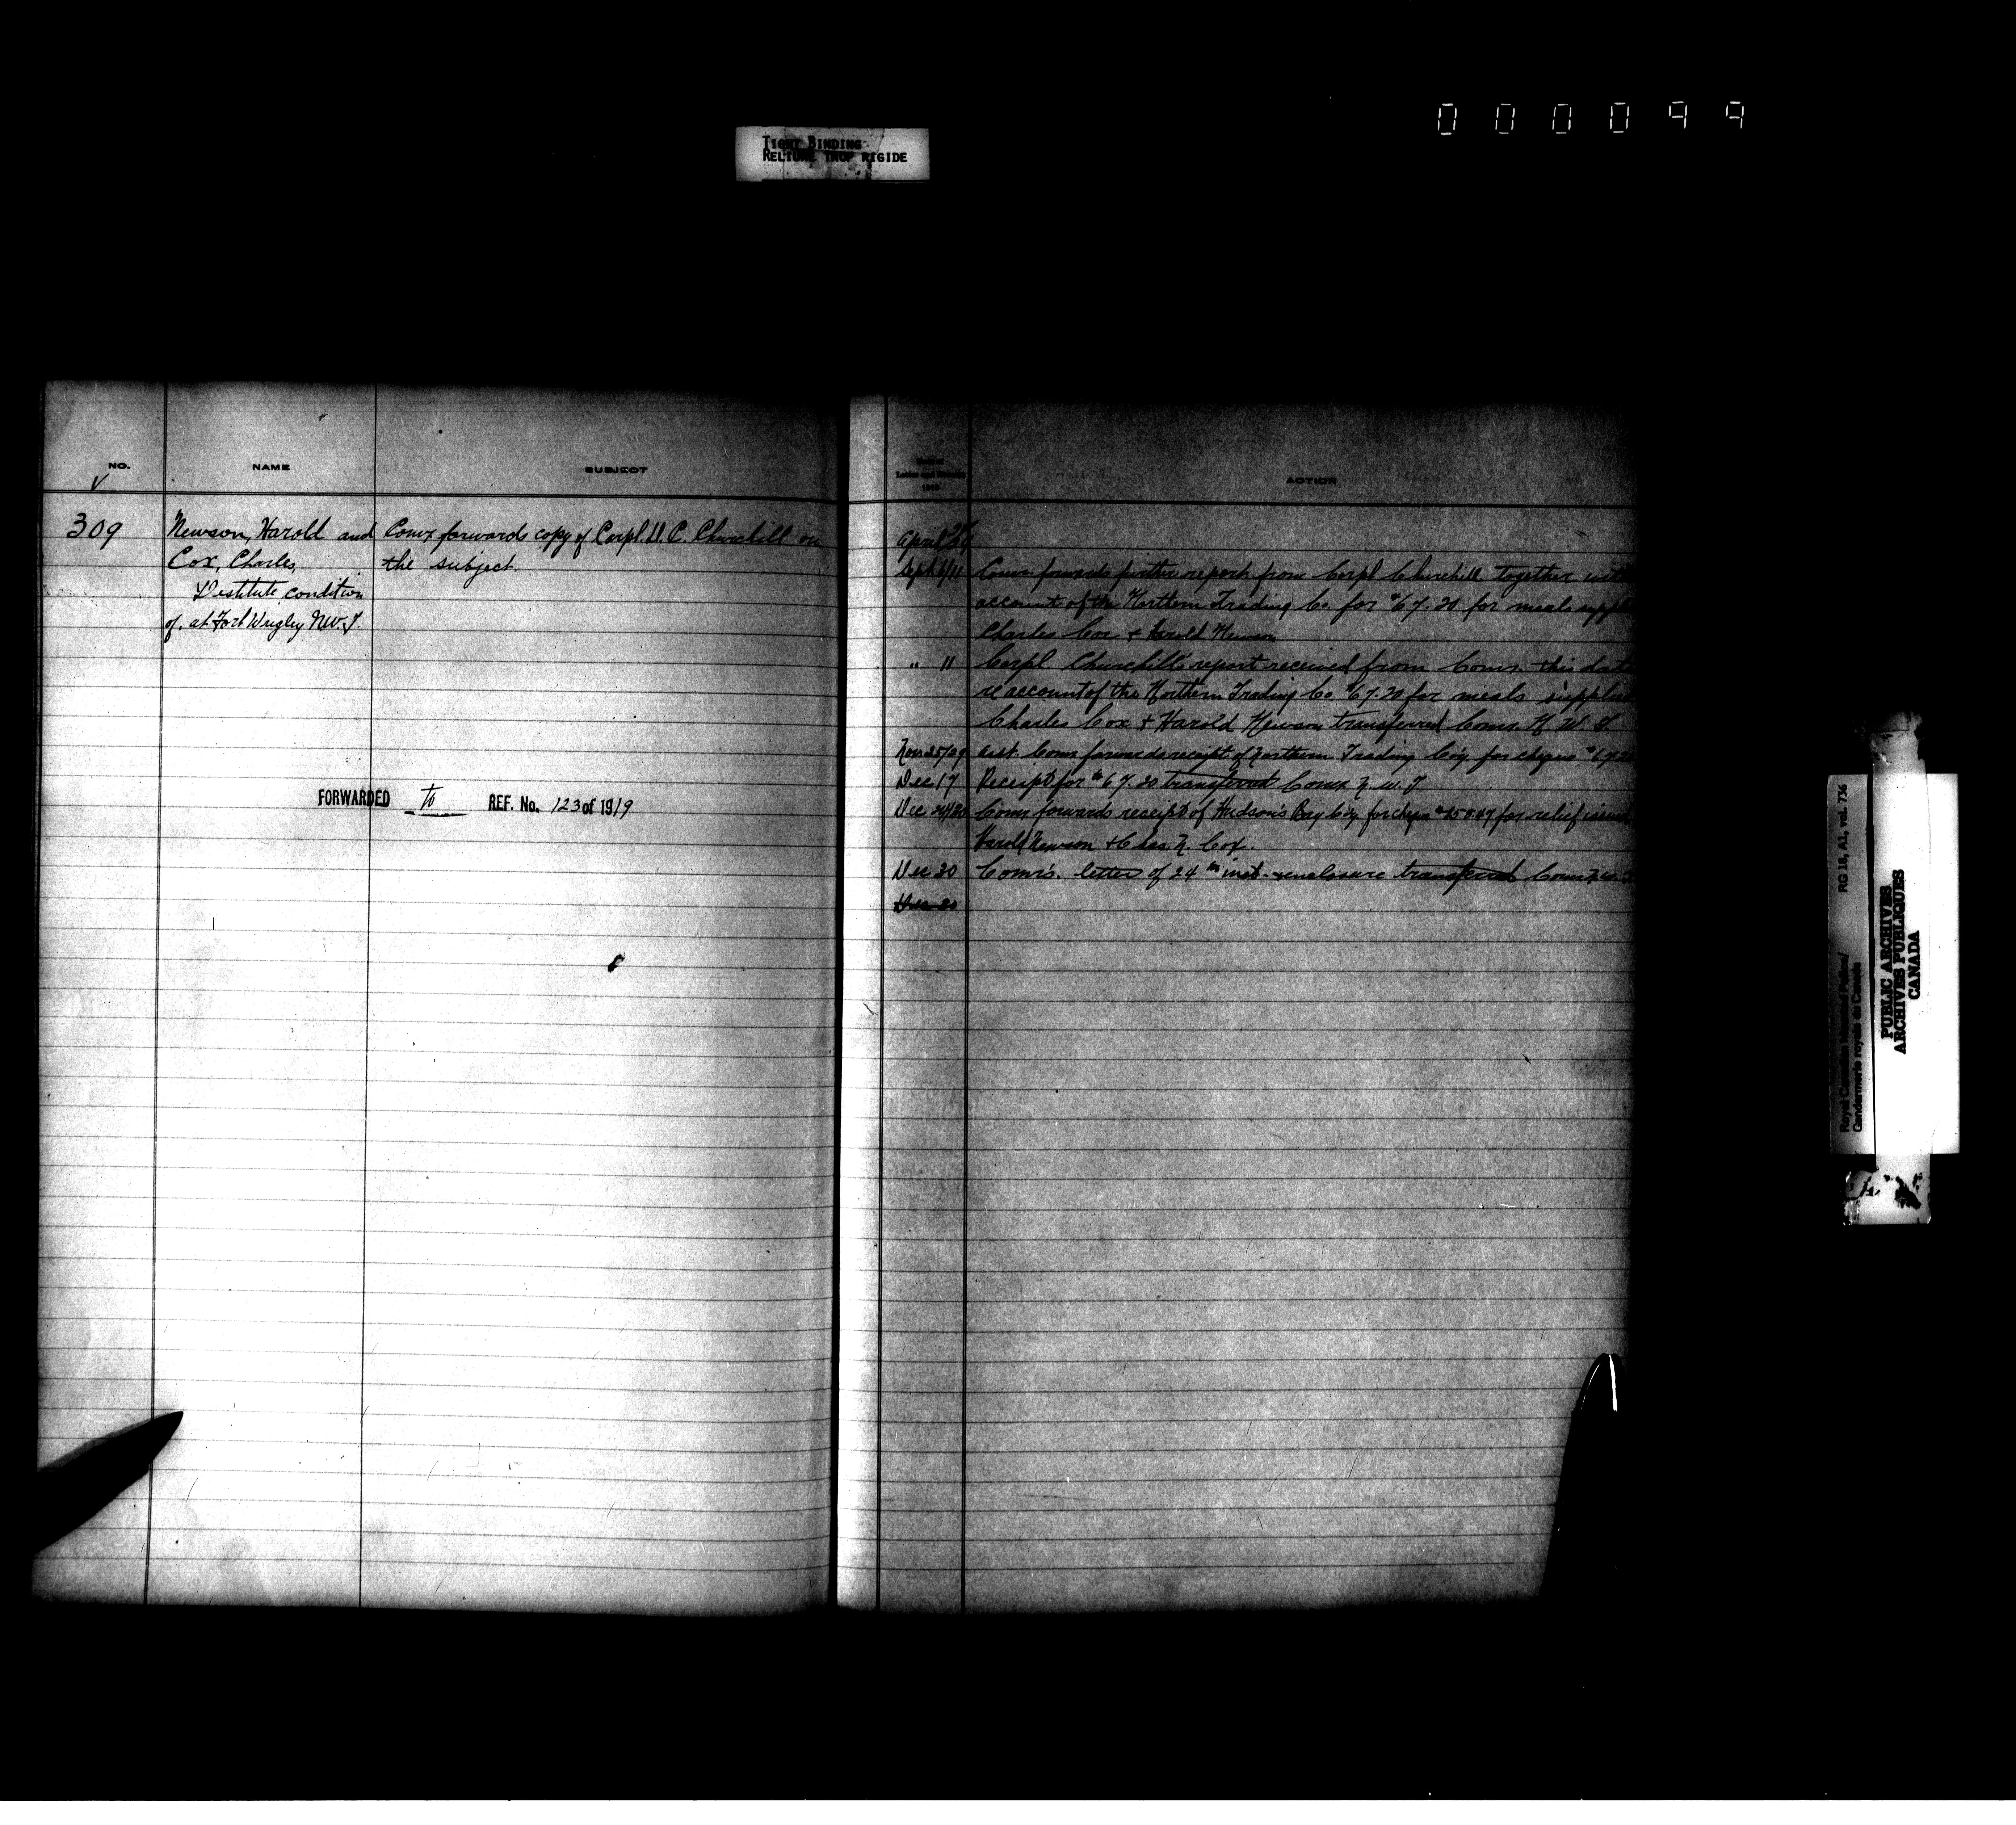 000099
TIGHT BINDING
RELIURE TROP RIGIDE
NO.
NAME
SUBJECT
Letter and
ACTION
309
Newson, Harold and
Cox, Charles,
Destitute condition
of, at Fort Wrigley N.W.T.
Comr forwards copy of Corpl. Churchill on
the subject.
FORWARDED To REF. No. 123 of 1919
April
Sept Comr. forwards further report from Corpl Churchill together with
account of the Northern Trading Co. for $67.20 for meals
Charles Cox & Harold Newson
" 11 Corpl Churchill's report received from Comr. this date
re account of the Northern Trading Co $67.20 for meals supplied
Charles Cox & Harold Newson transferred Comr. N. W. T.
Nov. 25/29 Asst. Comr forwards receipt of Northern Trading Co'y. for cheque
Dec 17 Receipt for $67.20 transferred Comr N. W. T
Dec Comr forwards receipt of Hudson's Bay Co'y. for cheque for relief issued
Harold Newson & Chas. N. Cox.
Dec 30 Comr's. letter of 24th inst. & enclosure transferred Comr N.W.
Dec 30
RG 18, A1, vol. 736
Royal Canadian Mounted Police/
Gendarmerie royale du Canada
PUBLIC ARCHIVES
ARCHIVES PUBLIQUES
CANADA